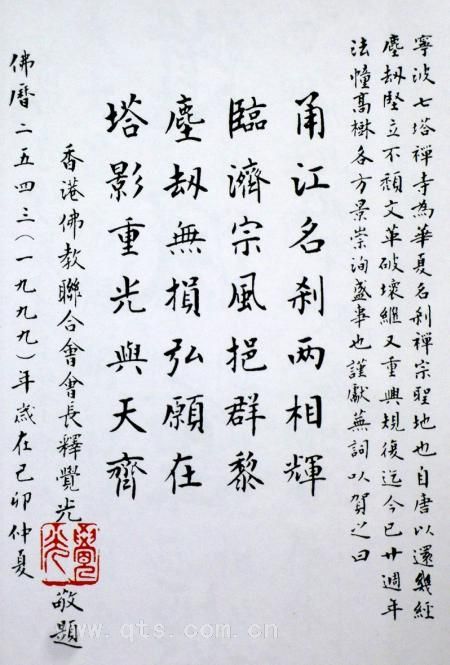 寧波七塔禪寺為華夏名剎禪宗聖地也自唐以還幾經
塵劫堅立不頹文革破壞繼又重興規復迄今已廿週年
法幢高樹各方景崇洵盛事也謹獻蕪詞以賀之曰
甬江名剎两相輝
臨濟宗風挹群黎
塵劫無損弘願在
塔影重光與天齊
香港佛教聯合會會長釋覺光 敬題
佛曆二五四三(一九九九)年歲在己卯仲夏
覺光
www.qts.com.cn